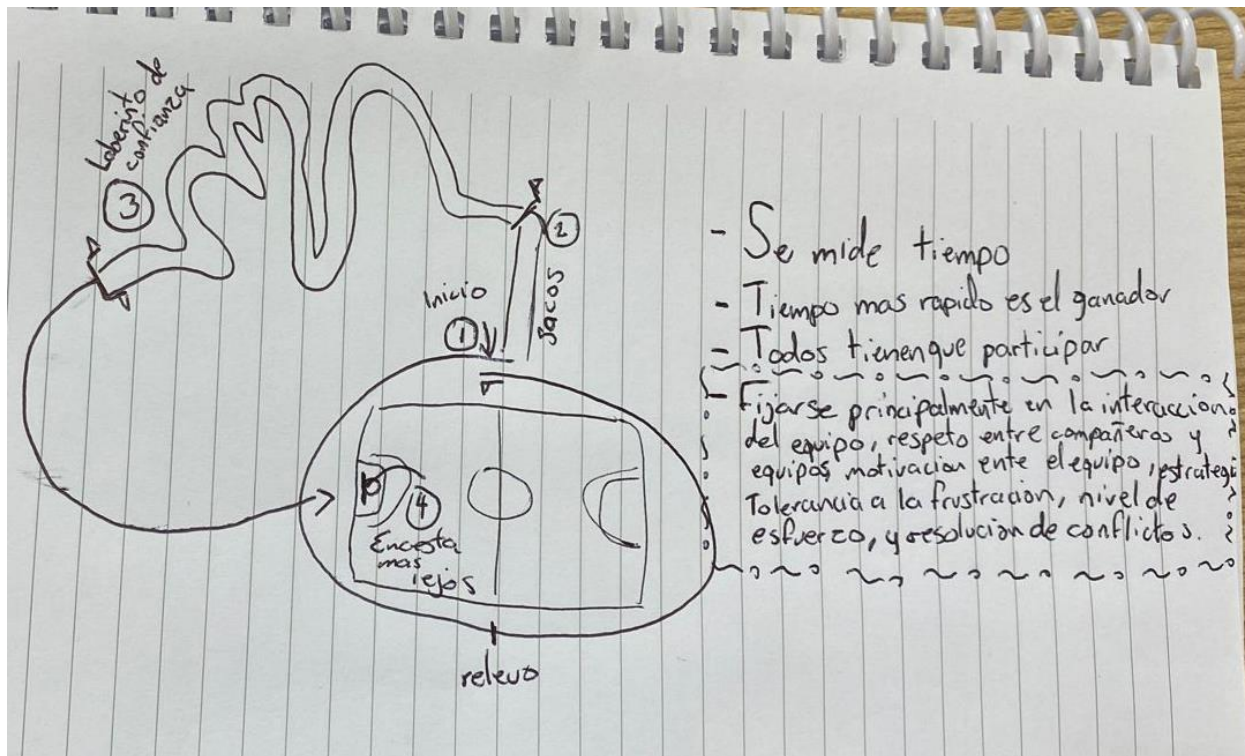 Laberinto de
confianza
3
2
Inicio
1
Sacos
4
Encesta
mas
lejos
relevo
- Se mide tiempo
- Tiempo mas rapido es el ganador
- Todos tienen que participar
- Fijarse principalmente en la interaccion
del equipo, respeto entre compañeros y
equipos, motivacion ente el equipo, estrategi
Tolerancia a la frustracion, nivel de
esfuerzo, y resolucion de conflictos.